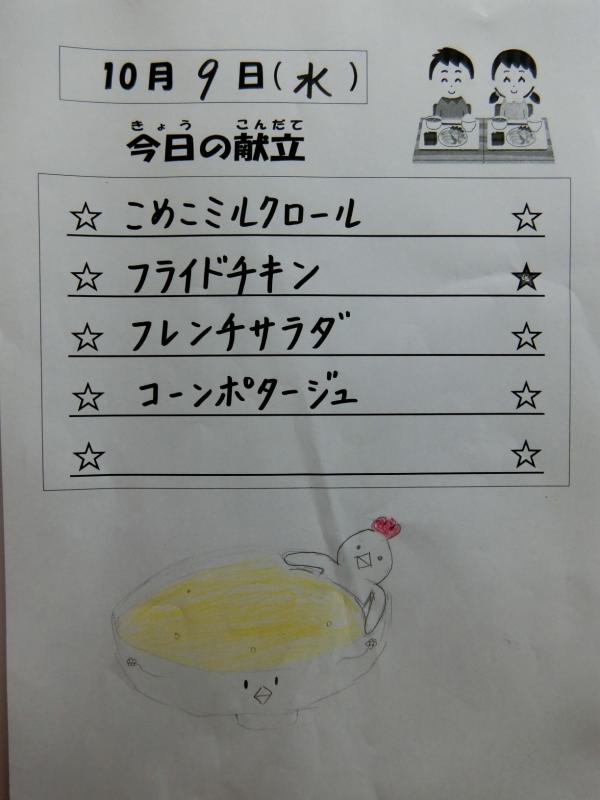 10月 9 日(水)
きょう こんだて
今日の献立
☆ こめこミルクロール ☆
☆ フライドチキン ★
☆ フレンチサラダ ☆
☆ コーンポタージュ ☆
☆ ☆